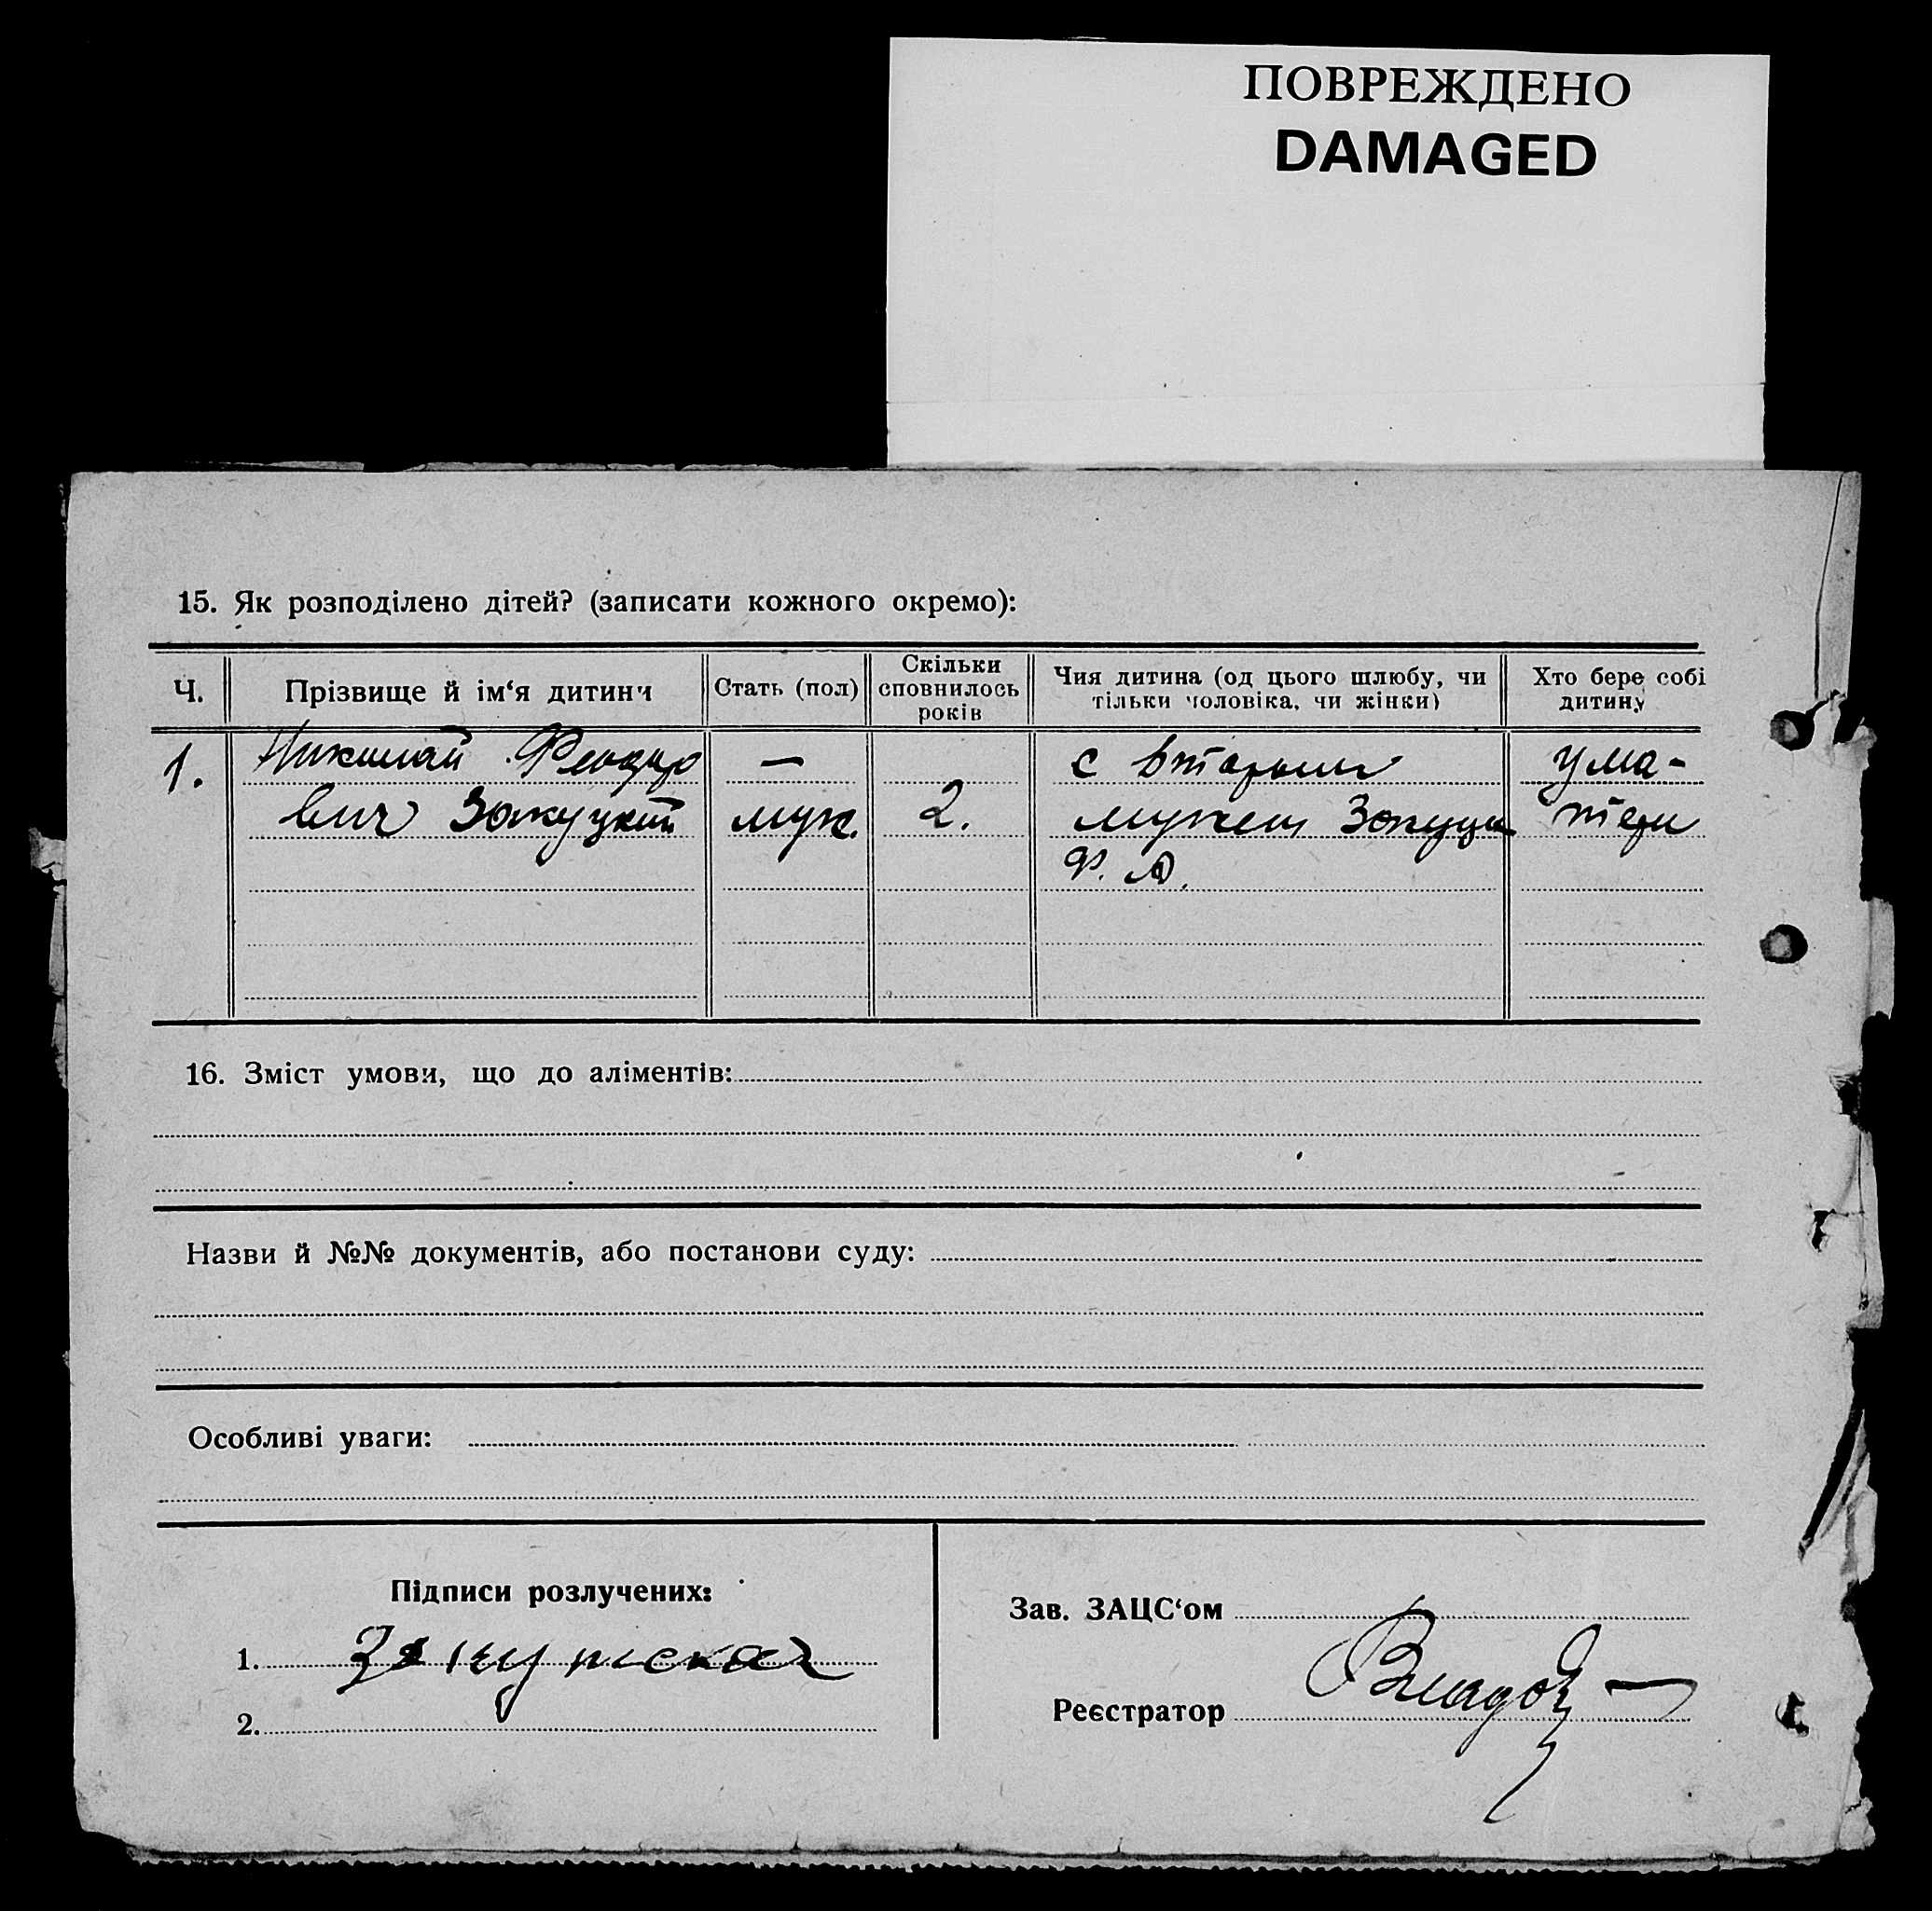 ПОВРЕЖДЕНО
DAMAGED
15. Як розподілено дітей? (записати кожного окремо):
Ч. Прізвище й ім‘я дитини Стать (пол) Скільки сповнилось років Чия дитина (од цього шлюбу, чи тільки чоловіка, чи жінки) Хто бере собі дитину
1. Николай Феодоро — с вторым у ма-
вич Закуцкий муж. 2. мужем тери
Ф. А.
16. Зміст умови, що до аліментів:
Назви й №№ документів, або постанови суду:
Особливі уваги:
Підписи розлучених:
Зав. ЗАЦС‘ом
1. Закутская
Реєстратор
2.